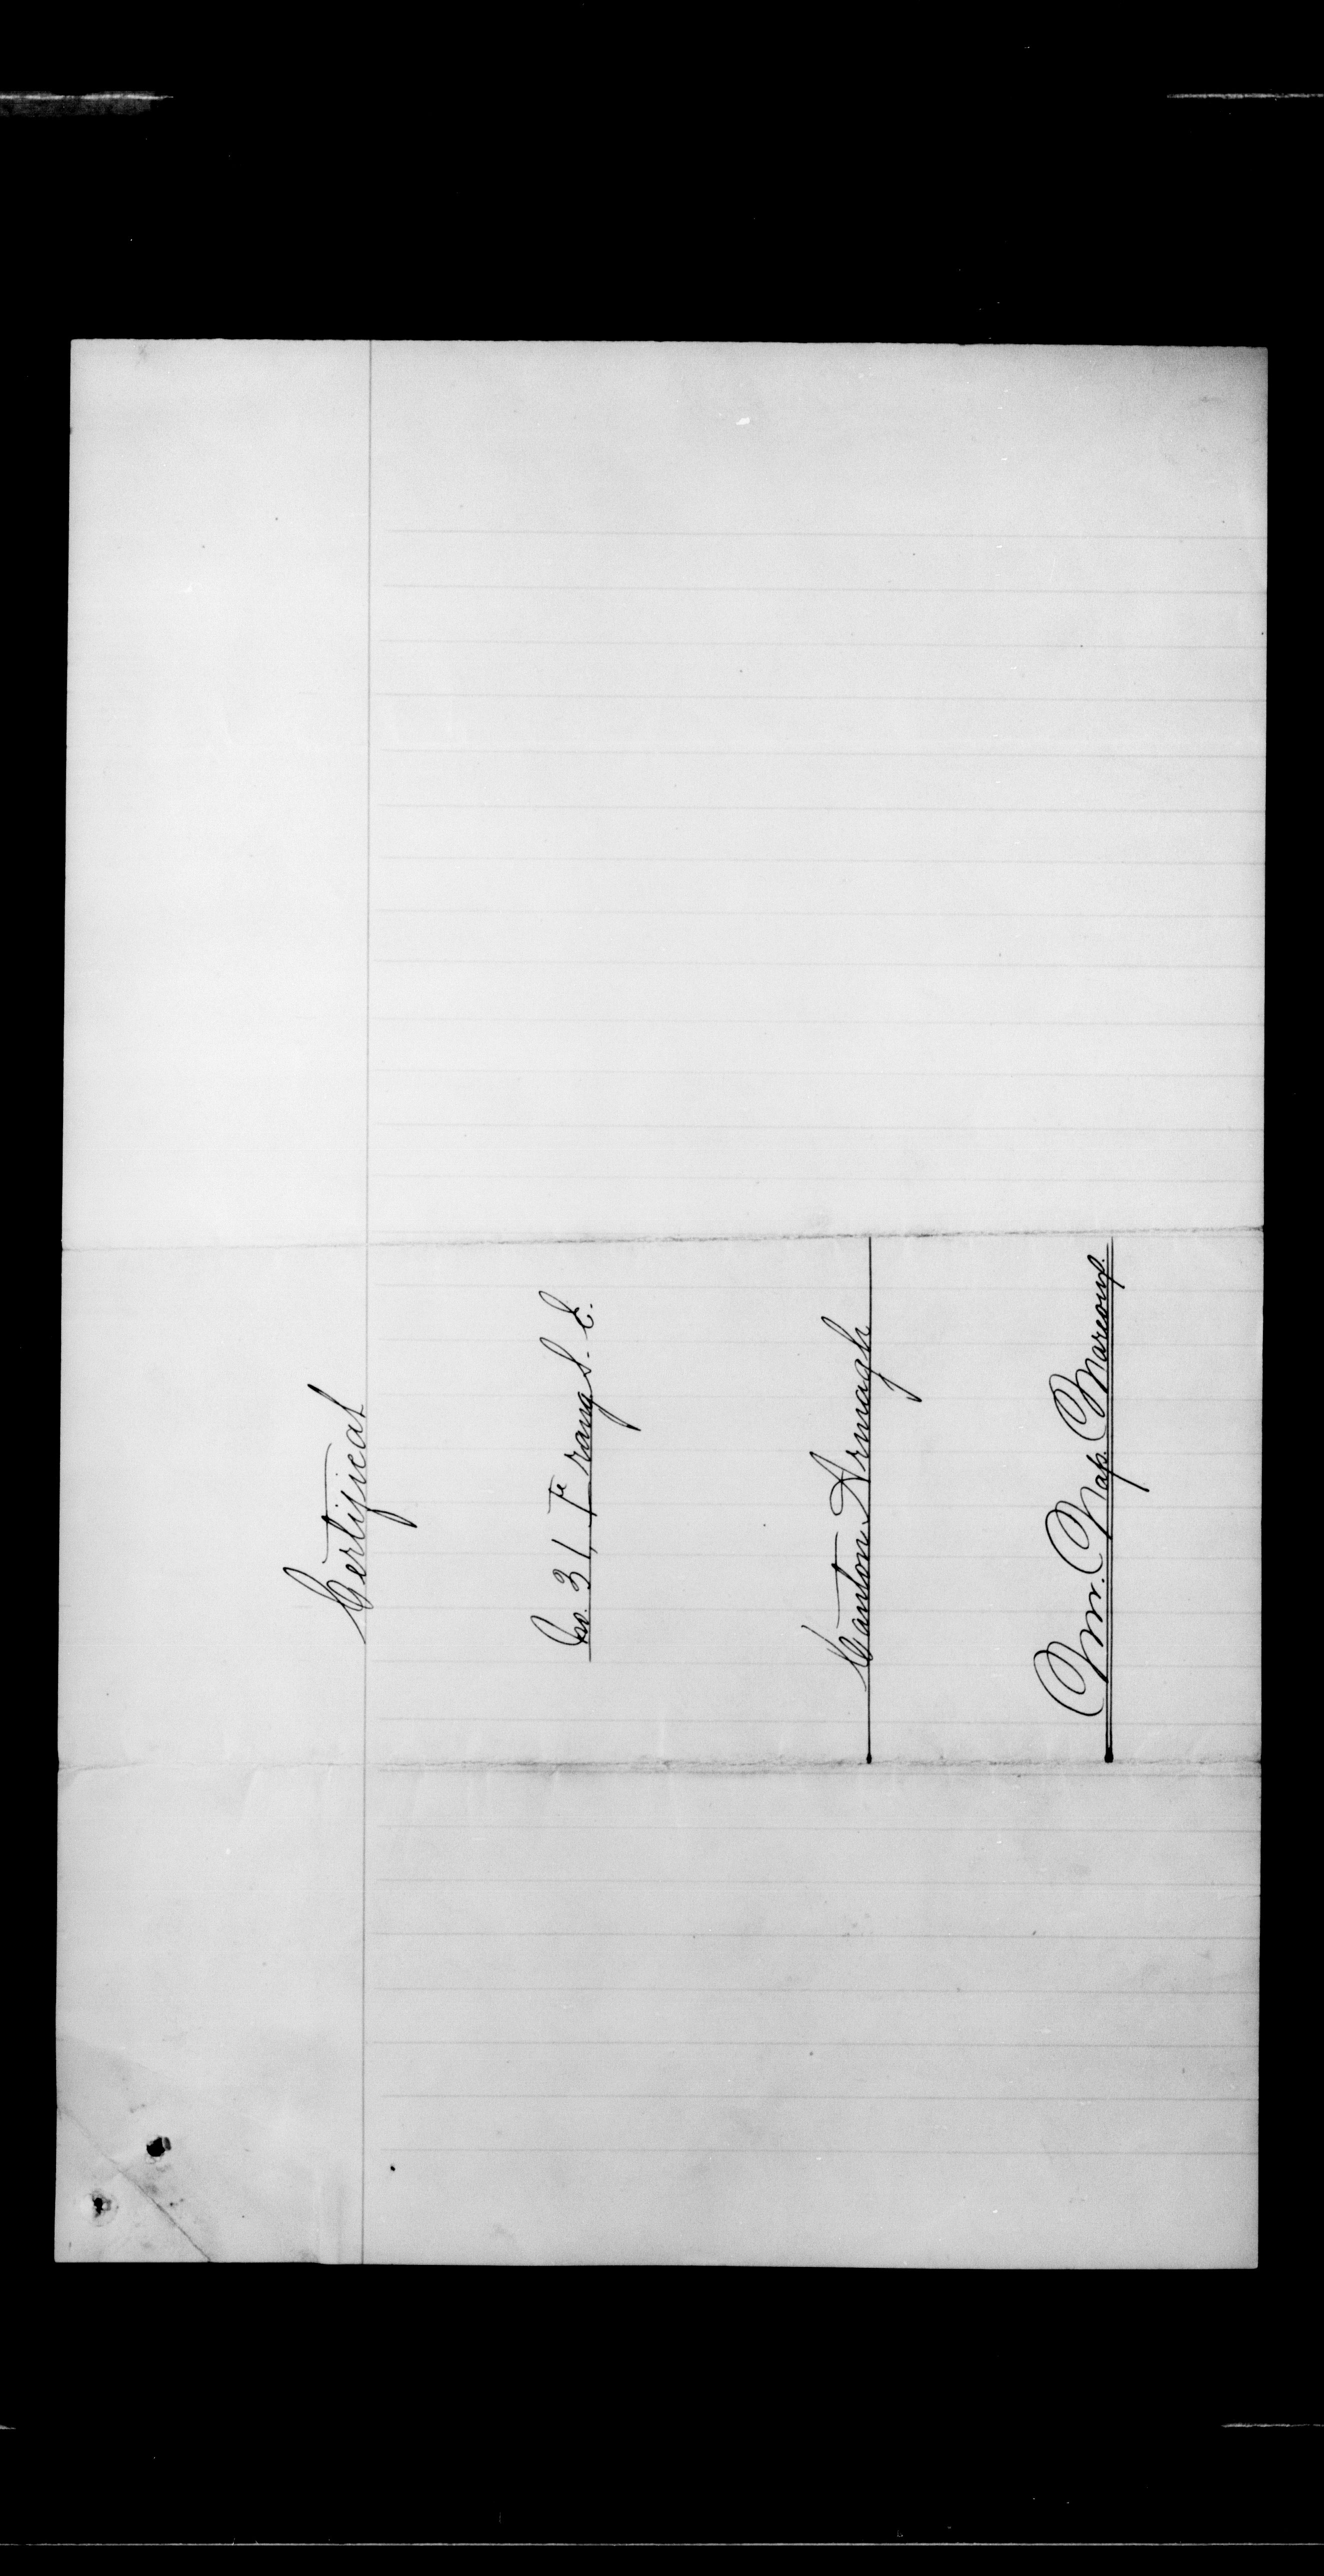 Certificat
No. 31, 1er rang S. E.
Canton Armagh
Mr. Nap. Marcoux.